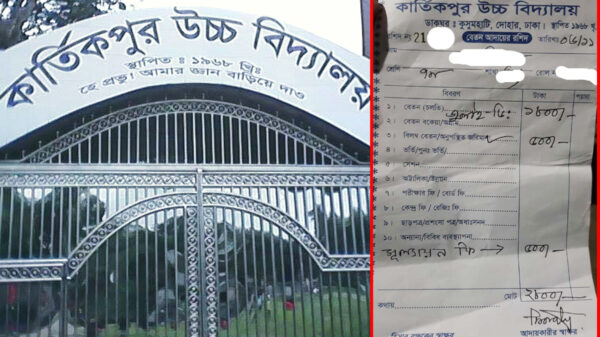 কার্তিকপুর উচ্চ বিদ্যালয়
স্থাপিত : ১৯৬৮ খ্রি:
হে প্রভু! আমার জ্ঞান বাড়িয়ে দাও
কার্তিকপুর উচ্চ বিদ্যালয়
ডাকঘর : কুসুমহাটি, দোহার, ঢাকা। স্থাপিত ১৯৬৮ খ্রি:
রশিদ নং 21
বেতন আদায়ের রশিদ
তারিখঃ
শ্রেণি
শাখা
রোল নং
বিবরণ
টাকা
পয়সা
১। বেতন (চলতি)
২। বেতন বকেয়া/
৩। বিলম্ব বেতন/অনুপস্থিত জরিমানা
৫০০/-
৪। ভর্তি/পুনঃ ভর্তি
৫। সেশন
৬। অট্টালিকা/উন্নয়ন
৭। পরীক্ষার ফি / বোর্ড ফি
৮। কেন্দ্র ফি / রেজিঃ ফি
৯। ছাড়পত্র/প্রশংসা পত্র/
১০। অন্যান্য/বিবিধ ব্যবস্থাপনা
মূল্যায়ন ফি → ৫০০/-
মোট
২৮০০/-
কথায়
আদায়কারীর স্বাক্ষর